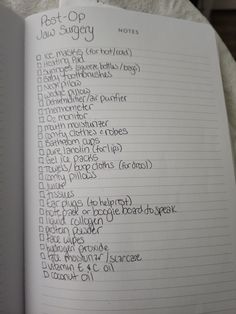 Post-Op
Jaw Surgery
NOTES
Ice masks (for hot/cold)
Heating Pad
Syringes (squeeze bottles/bags)
Baby toothbrushes
Neck pillow
Wedge pillow
Dehumidifier/air purifier
Thermometer
O2 monitor
mouth moisturizer
comfy clothes + robes
Bathroom cups
pure lanolin (for lips)
Gel ice packs
Towels/burp cloths (for drool)
comfy pillows
juice
tissues
Ear plugs (to help rest)
note pad or boogie board to speak
liquid collagen
protein powder
face wipes
hydrogen proxide
face moisturizer/skincare
vitamin E & C oil
coconut oil